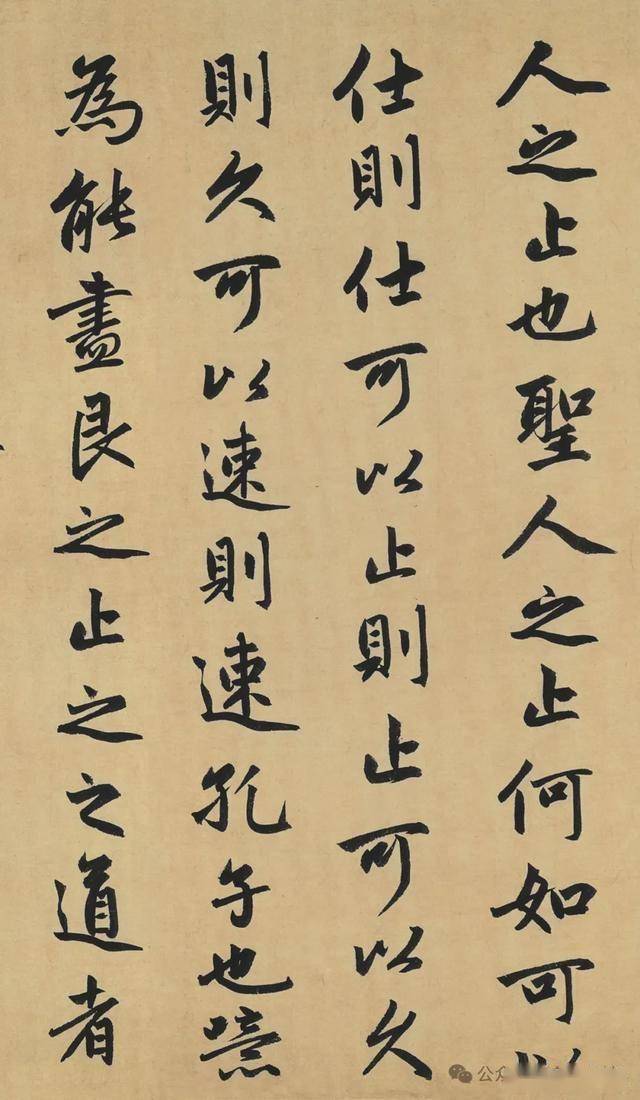 人之止也聖人之止何如可以
仕則仕可以止則止可以久
則久可以速則速孔子也噫
為能盡艮之止之之道者
公众